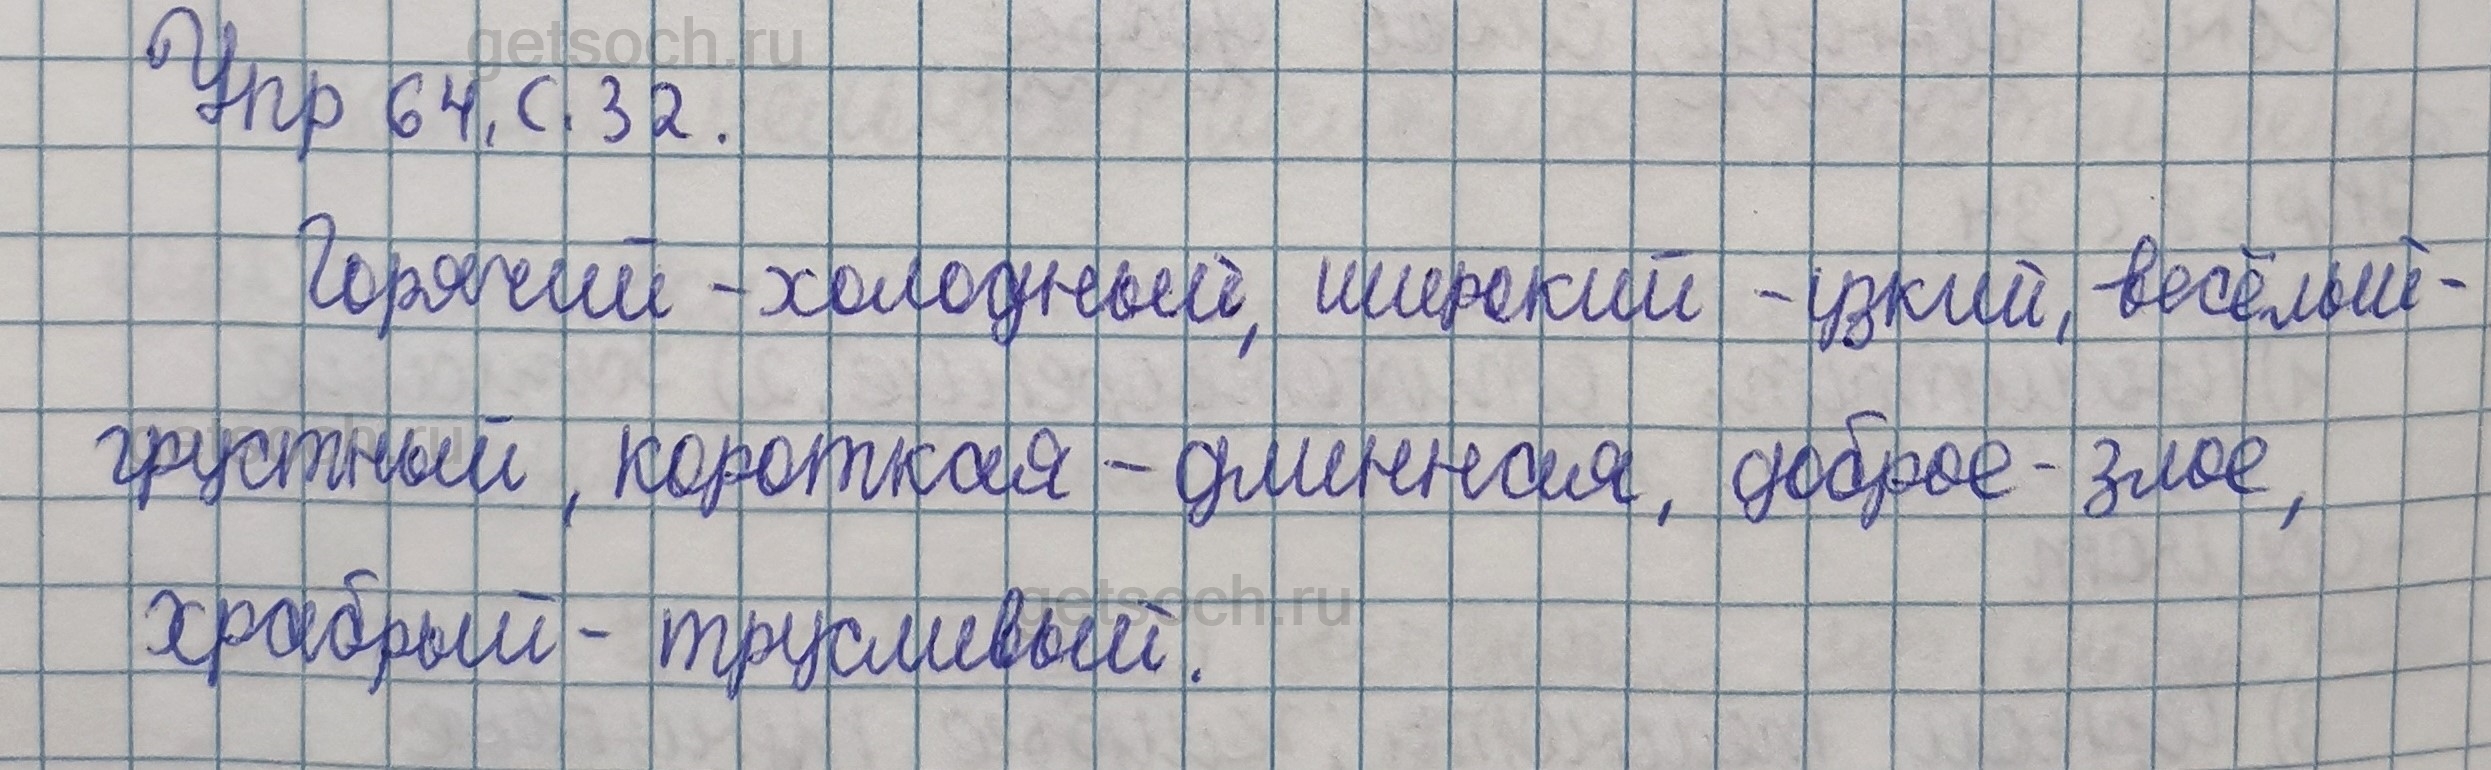 getsoch.ru
Упр 64, с. 32.
Горячий - холодный, широкий - узкий, весёлый -
getsoch.ru
грустный, короткая - длинная, доброе - злое,
getsoch.ru
храбрый - трусливый.